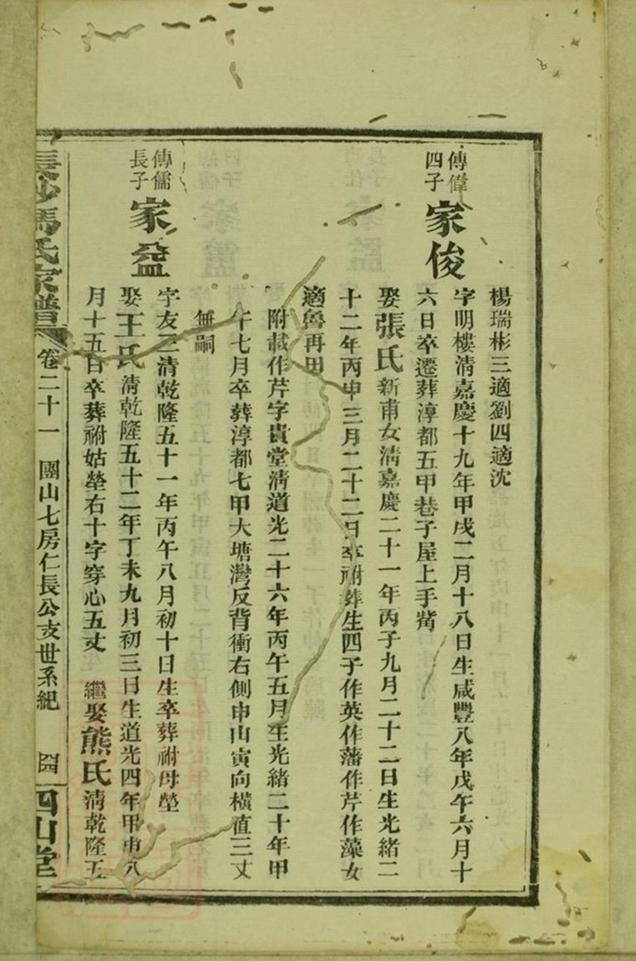 楊瑞彬三適劉四適沈
傳偉
四子
家俊
字明樓清嘉慶十九年甲戌二月十八日生咸豐八年戊午六月十
六日卒遷葬淳都五甲巷子屋上手
娶張氏新甫女清嘉慶二十一年丙子九月二十二日生光緒二
十二年丙申三月二十二日卒祔葬生四子作英作藩作芹作藻女
適魯再田
附載作芹字貴堂清道光二十六年丙午五月生光緒二十年甲
午七月卒葬淳都七甲大塘灣反背衝右側申山寅向橫值三丈
無嗣
傳儒
長子
家益
字友三清乾隆五十一年丙午八月初十日生卒葬祔母塋
娶王氏清乾隆五十二年丁未九月初三日生道光四年甲申八
月十五日卒葬祔姑塋右十字穿心五丈 繼娶熊氏清乾隆五
長沙馮氏家譜 卷二十一 團山七房仁長公支世系紀 四山堂